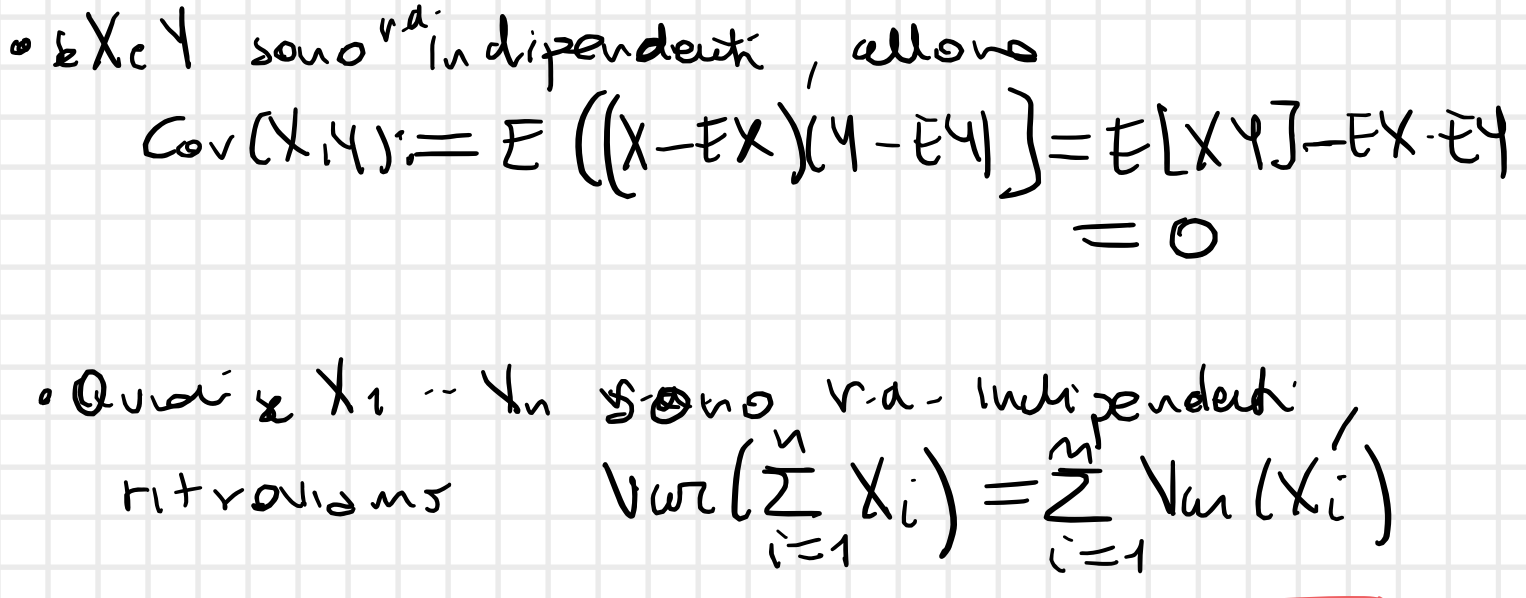 • se X e Y sono r.a. indipendenti, allora
Cov(X,Y) := E[(X-EX)(Y-EY)] = E[XY]-EX·EY
= 0
• Quindi se X₁ -- Xₙ sono r.a. indipendenti,
ritroviamo Var(∑ᵢ₌₁ⁿ Xᵢ) = ∑ᵢ₌₁ⁿ Var(Xᵢ)